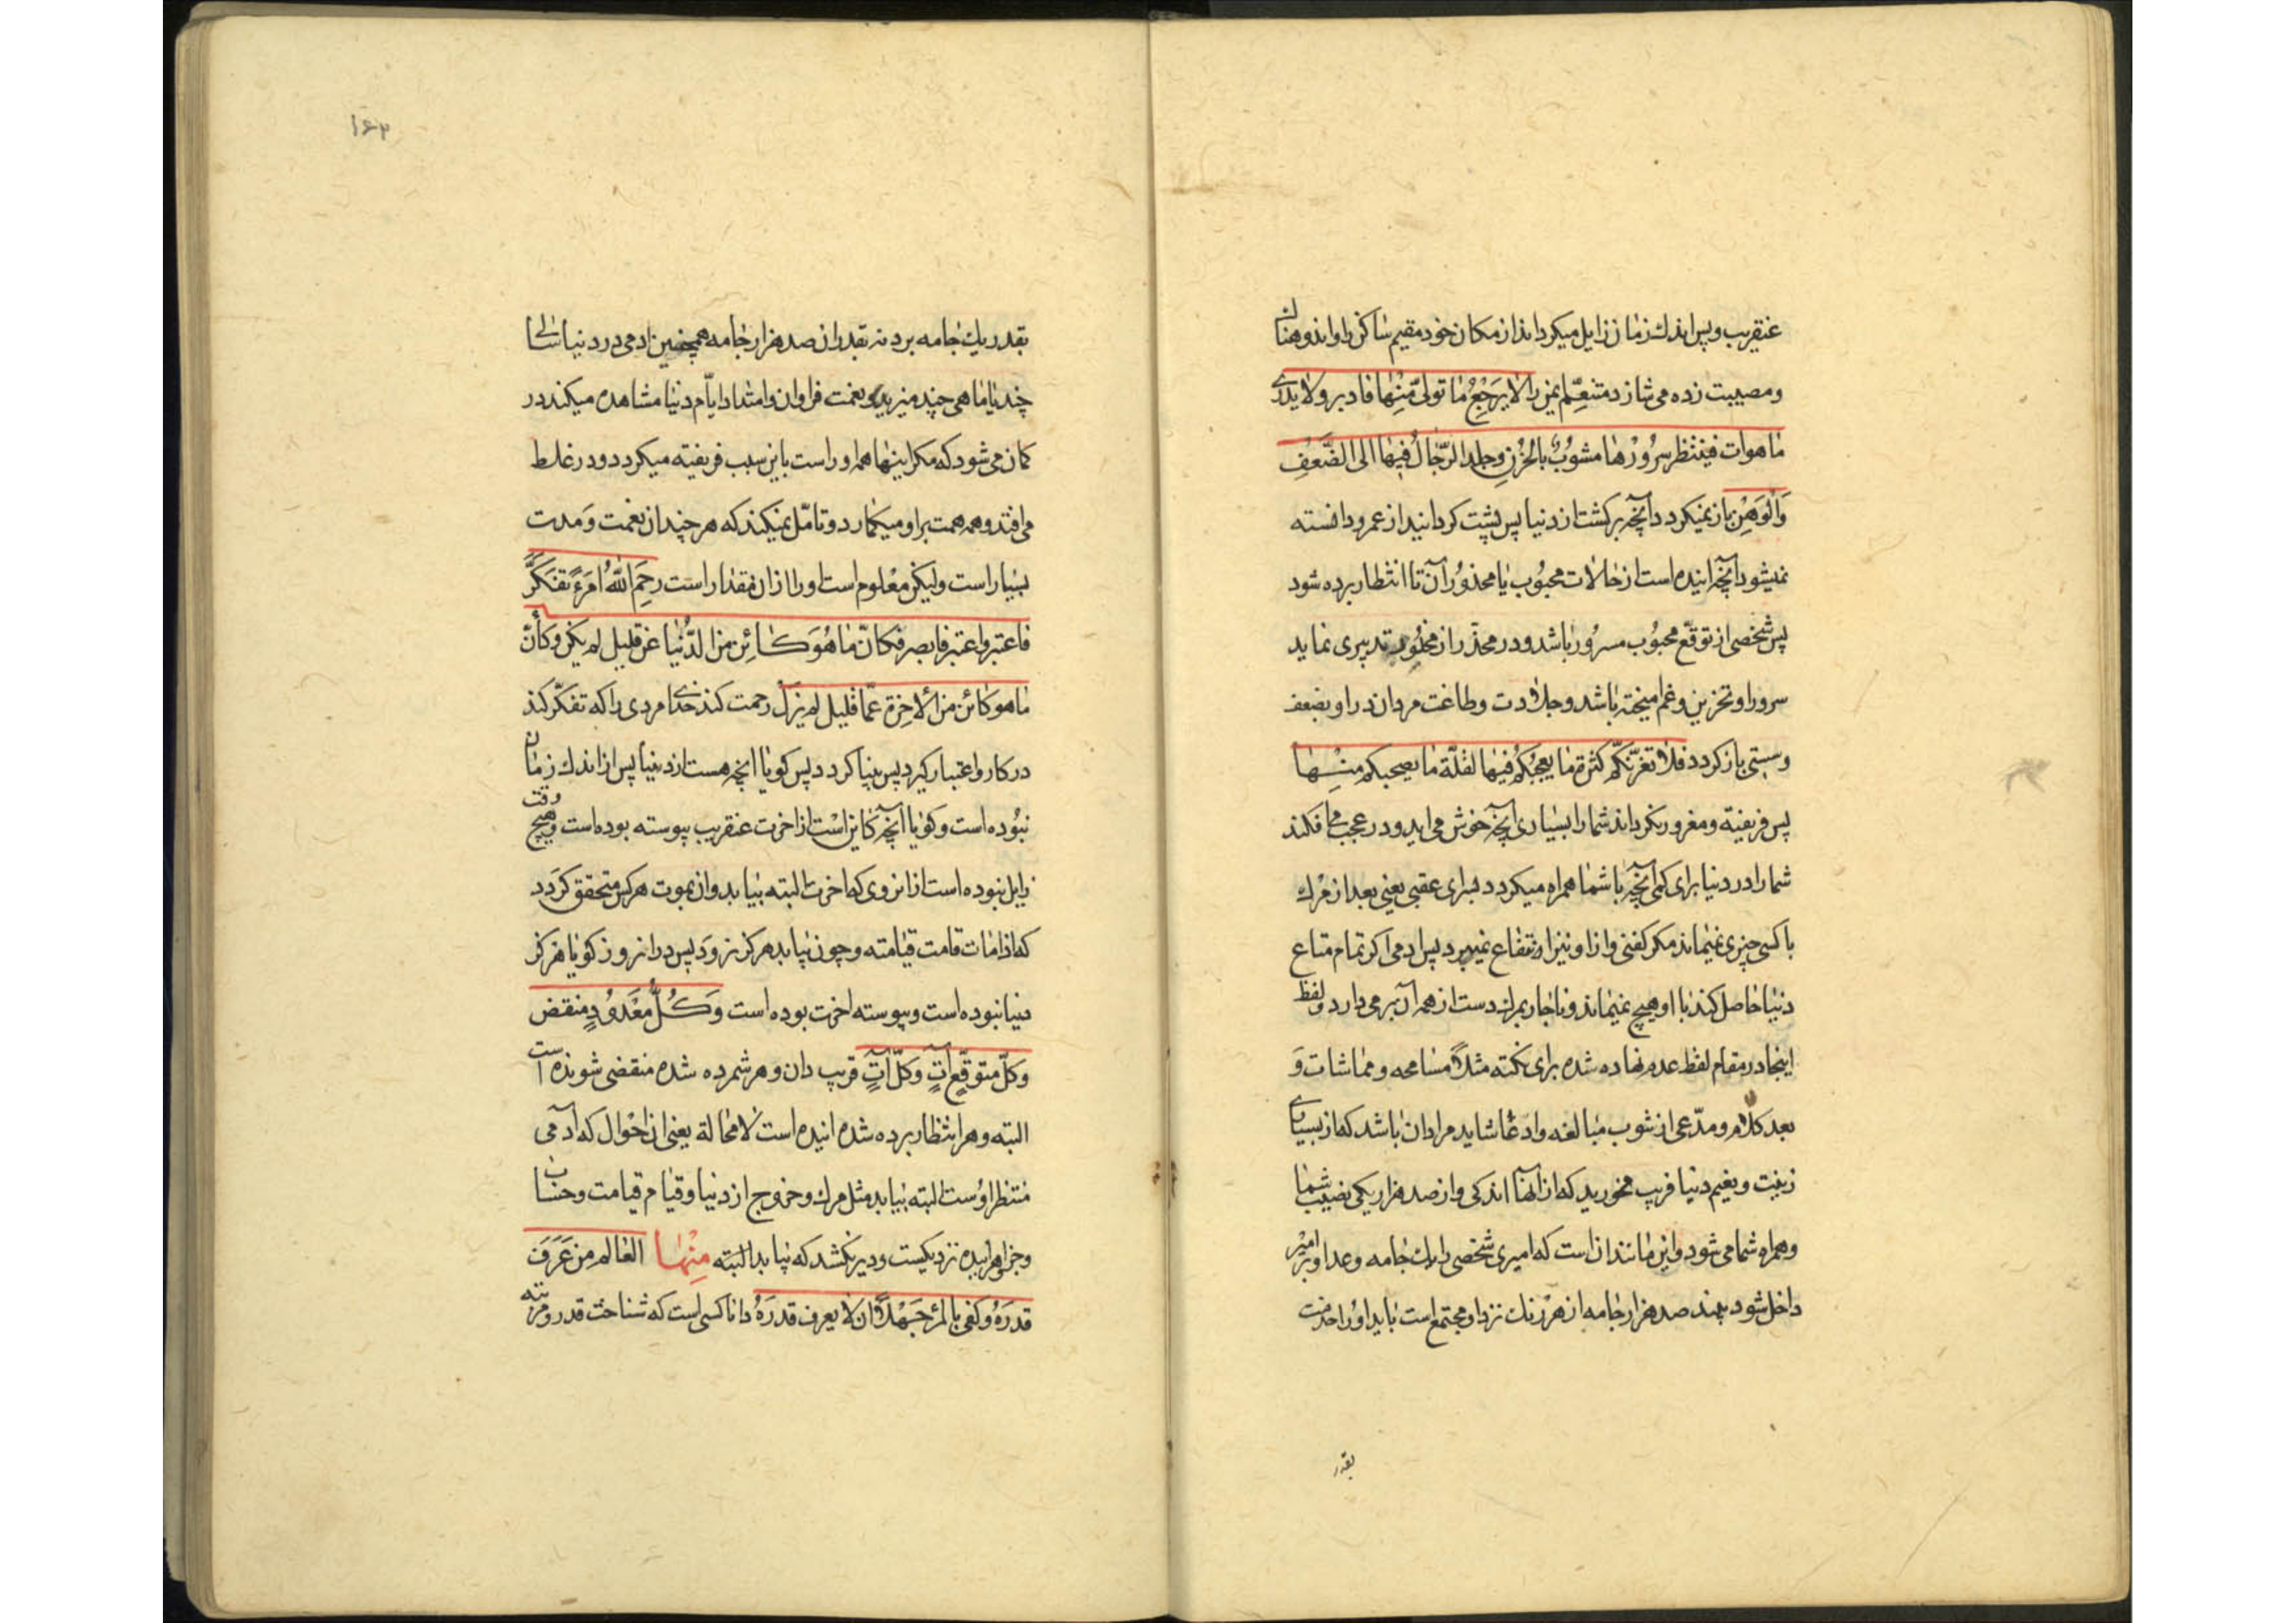 عنقریب و پس اندک زمان زایل میکرداند از مکان خود مقیم ساکن را و اندوهناک
و مصیبت زده می سازد متنعّم ایمن را لا یَرْجِعُ مٰا تولّی مِّنْهٰا فادبر و لا یدرٰی
مٰا هوات فینتظر سُرُوْرُهٰا مشوُبٌ بالحُزْنِ و جلد الرّجٰالُ فیهٰا الی الضَّعفِ
وَ الْوَهْنِ باز نمیکردد دآنچه برکشت از دنیا پس پشت کردانید از عمر و دانسته
نمیشود دآنچه اینده است از حالات محبوُب یا محذوُر آن تا انتظار برده شود
پس شخصی از توقّع محبوُب مسروُر باشد و در محذّر از محذُور تدبیری نماید
سرور او تحزین و غم امیخته باشد و جلادت و طاقت مردان در او بضعف
و سستی باز کردد فلا تغرّنّکم کثرة ما یعجبُکُم فیهٰا لقلّة مٰا یصحبکم مِنْهٰا
پس فریفته و مغرور نکرداند شما را بسیاری آنچه خوش می اید و در عجب می افکند
شما را در دنیا برای کمی آنچه با شما همراه میکردد برای عقبی یعنی بعد از مرک
با کسی چیزی نمیماند مکر کفنی و از او نیز انتفاع نمیبرد پس ادمی اکر تمام متاع
دنیا حاصل کند با او هیچ نمیماند و ناچار بمرک دست از همه آن برمی دارد و لفظ
اینجا در مقام لفظ عدم نهاده شده برای نکته مثلاً مسامحه و مماشات وَ
بعد کلام و مدّعی از شوب مبالغه و ادعا شاید مراد ان باشد که از بسیاری
زینت و نعیم دنیا فریب مخورید که از آنها اندکی و از صد هزار یکی نصیب شما
و همراه شما می شود و این مانند ان است که امیری شخصی را یک جامه وعدا و بر امیر
داخل شود بیند صد هزار جامه از هر رنک نزد او مجتمع است باید او را حسرت
بقدر
۱۶۳
بقدر یک جامه برد نه بقدر ان صد هزار جامه همچنین ادمی در دنیا سالی
چند یا ماهی چند میزید و نعمت فراوان و امتداد ایّام دنیا مشاهده میکند در
کمان می شود که مکر اینها همه او راست باین سبب فریفته میکردد و در غلط
می افتد و همه همت بر او میکمارد و تامّل نمیکند که هر چند ان نعمت وَ مدت
بسیار است ولیکن معْلوم است او را از ان مقدار است رحِمَ اللّٰهُ امَرَءً تفَکّرَ
فاعتبر و اعتبر فابصر فکانّ مٰا هُوَ کائِن من الدُّنیٰا عَن قلیل لم یکن و کأنّ
مٰا هو کائن من الاٰخِرة عمّا قلیل لم یزل رحمت کند خدای مردی را که تفکّر کند
در کار و اعتبار کیرد پس بینا کردد پس کویا آنچه هست از دنیا پس از اندک زمان
نبُوده است و کویا آنچه کاین اسْت از اخرت عنقریب پیوسته بوده است و هیچ وقت
زایل نبوده است از انروی که اخرت البته بیاید و ان بموت هر کس متحقق کرَدد
که اذا مٰات قامت قیٰامته و چون بیاید هرکز نرود پس در انروز کویا هرکز
دنیا نبوده است و پیوسته اخرت بوده است وَ کُلُّ مَعْدوُدٍ منقض
و کلّ متوقّعٍ آتٍ و کلّ آتٍ قریب دان و هر شمرده شده منقضی شونده است
البته و هر انتظار برده شده اینده است لا محٰالة یعنی ان احْوال که آدمی
منتظر اوُست البته بیاید مثل مرک و خروج از دنیا و قیٰام قیامت و حساب
و جزا و هر اینده نزدیکست و دیر نکشد که بیاید البتّه مِنْهٰا العٰالم من عَرَفَ
قدرَهُ وَ کفی بالمرْءِ جَهْلاً ان لا یعرف قدرَهُ دانا کسی است که شناخت قدر و مرتبه